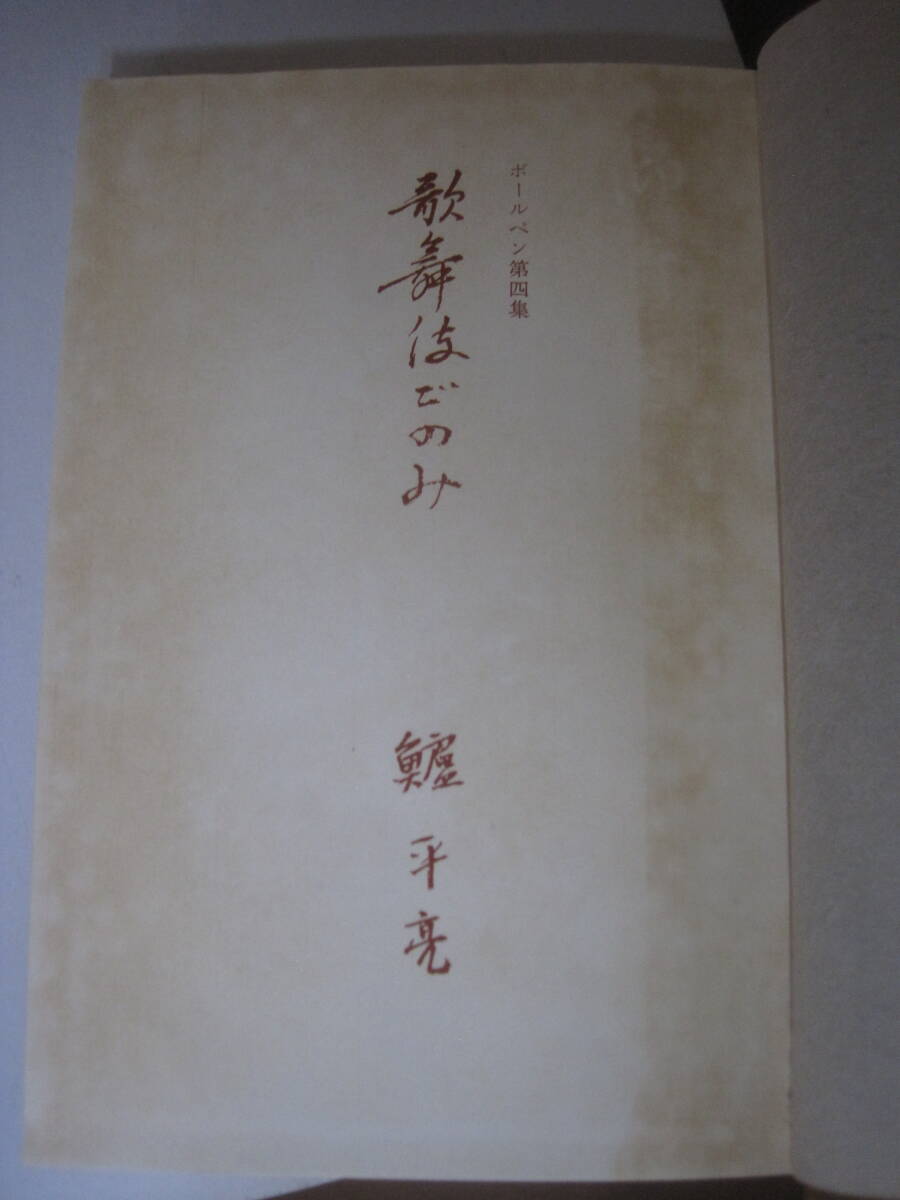 ボールペン第四集
歌舞伎ごのみ
鱸平亮